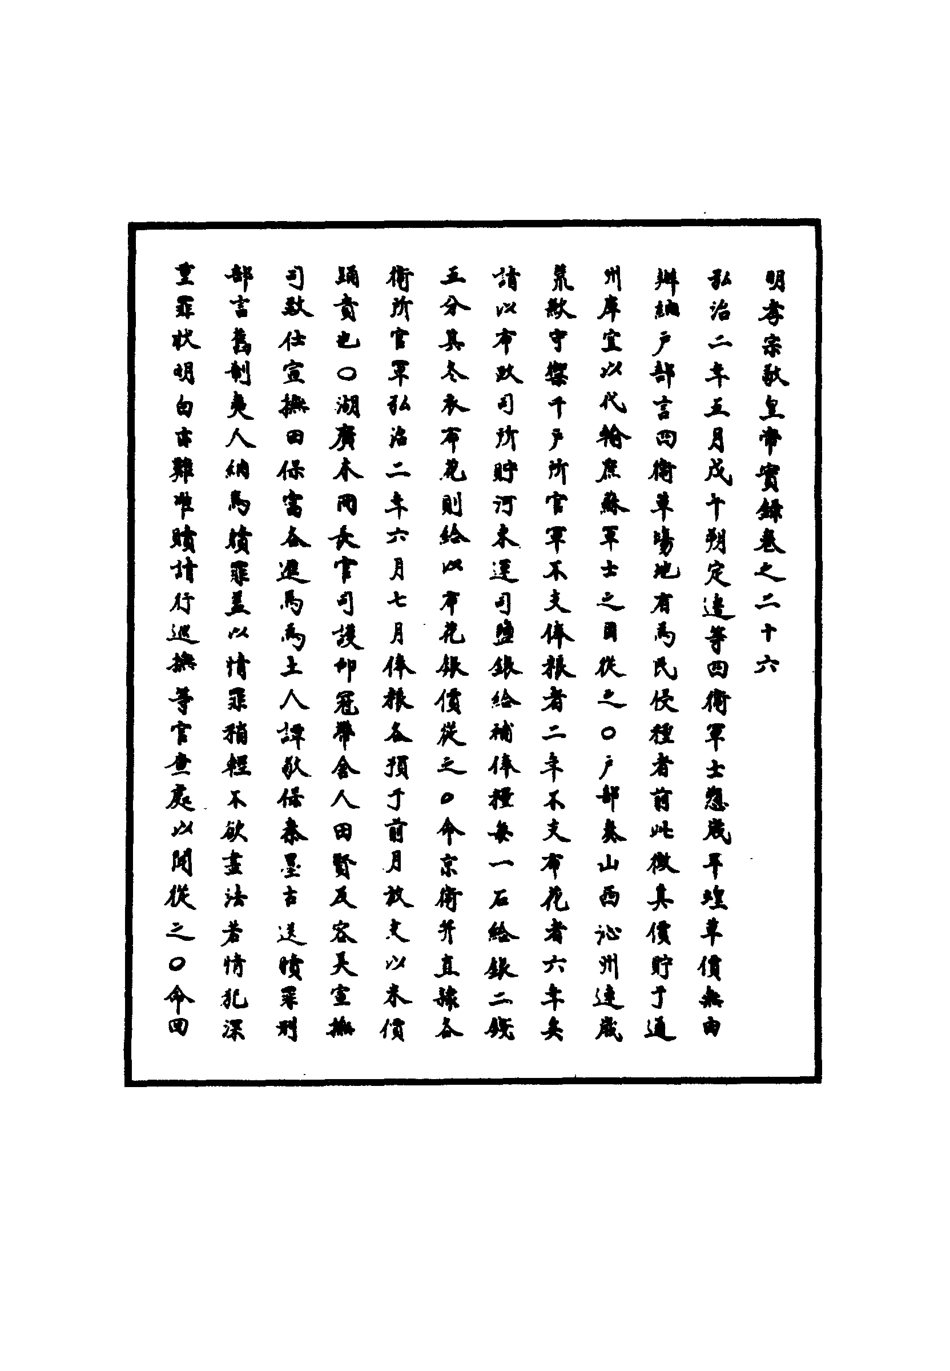 明孝宗敬皇帝實錄卷之二十六
弘治二年五月戊午朔定邊等四衛軍士愬歲旱蝗草價無由
辦納戶部言四衛草場地有為民侵種者前此徵其價貯于通
州庫宜以代輸庶蘇軍士之困從之○戶部奏山西沁州連歲
荒歉守禦千戶所官軍不支俸糧者二年不支布花者六年矣
請以布政司所貯河東運司鹽銀給補俸糧每一石給銀二錢
五分其冬衣布花則給以布花銀價從之○命京衛并直隸各
衛所官軍弘治二年六月七月俸糧各預于前月放支以米價
踊貴也○湖廣木冊長官司護印冠帶舍人田賢及容美宣撫
司致仕宣撫田保富各進馬為土人譚敬保秦墨古送贖罪刑
部言舊制夷人納馬贖罪蓋以情罪稍輕不欲盡法若情犯深
重罪狀明白亦難准贖請行巡撫等官查處以聞從之○命回